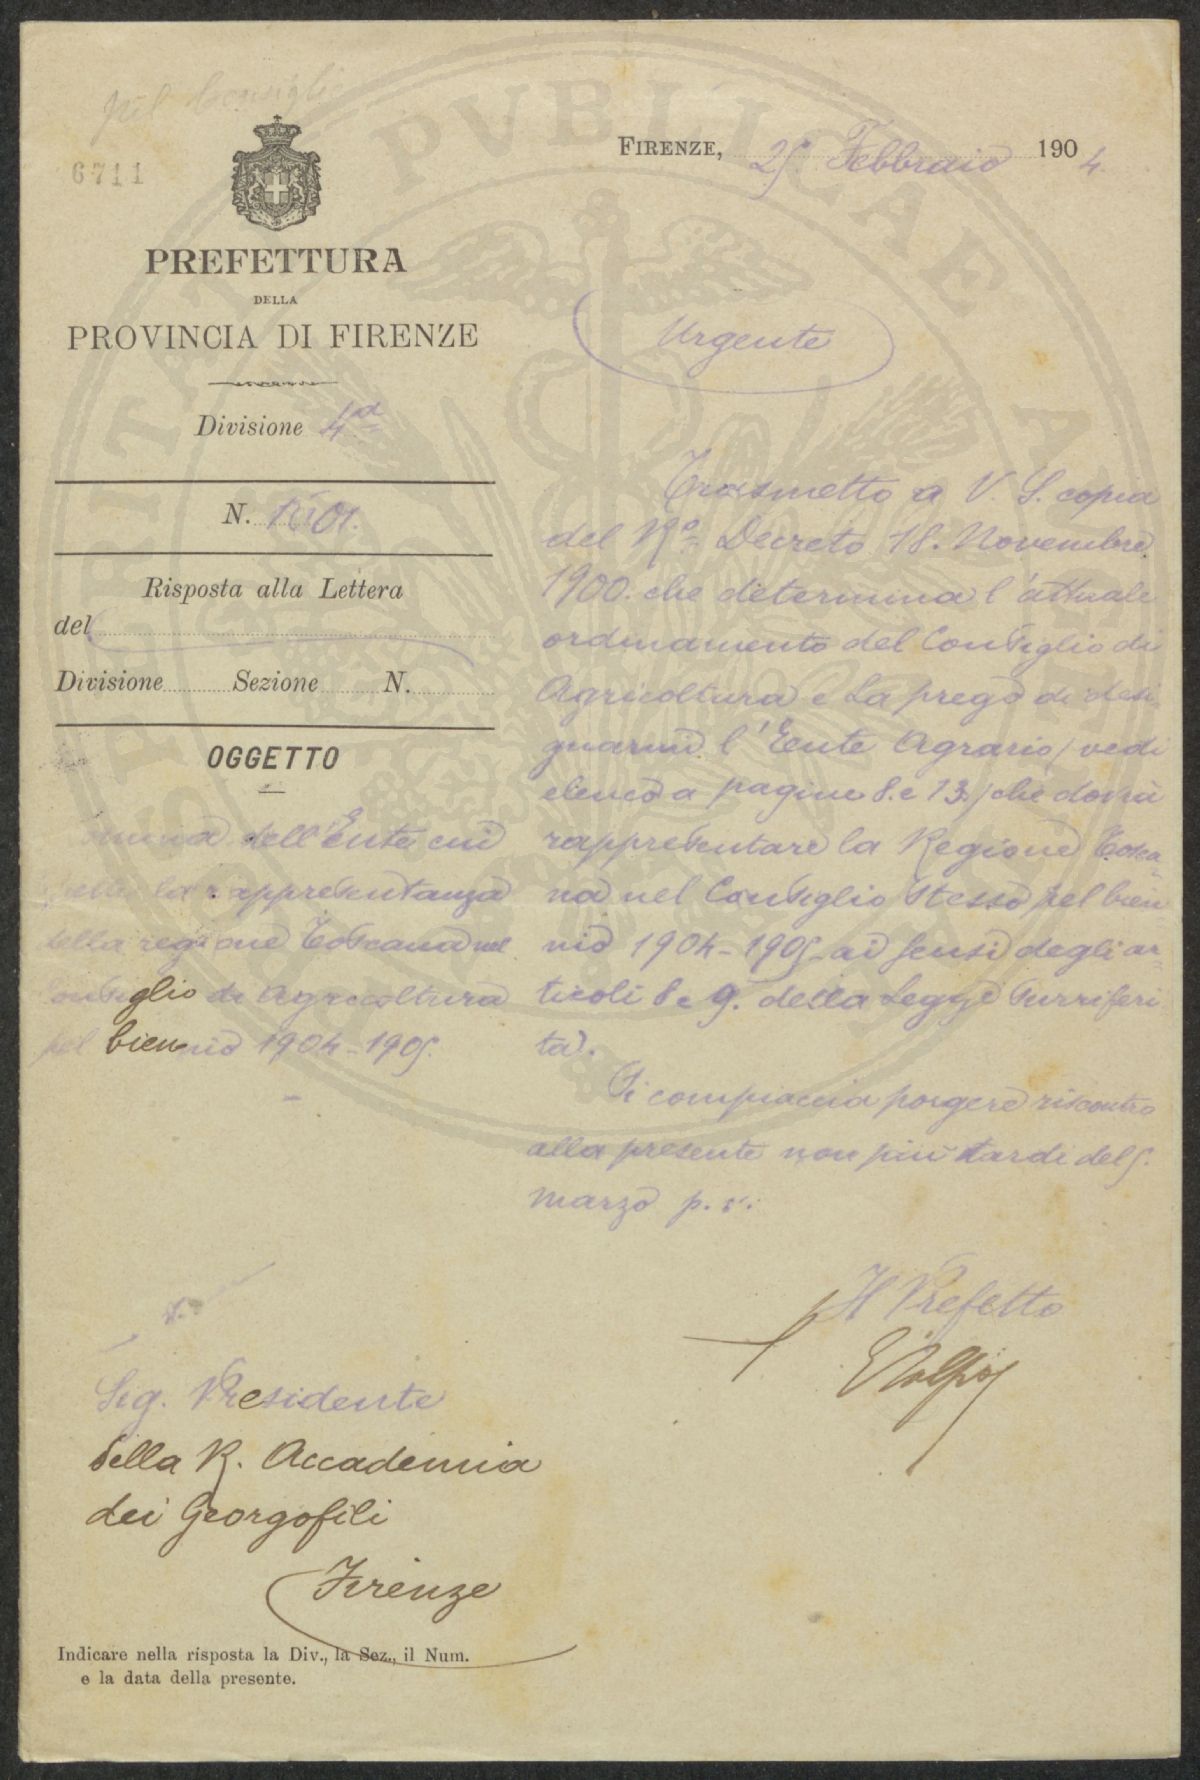 pel Consiglio
6711
PREFETTURA
DELLA
PROVINCIA DI FIRENZE
Divisione 4a
N.
Risposta alla Lettera
del
Divisione Sezione N.
OGGETTO
dell'Ente cui
la rappresentanza
della regione Toscana nel
Consiglio di Agricoltura
pel biennio 1904-1905.
FIRENZE, 25 Febbraio 1904
Urgente
Trasmetto a V. S. copia
del Ro Decreto 18. Novembre
1900. che determina l'attuale
ordinamento del Consiglio di
Agricoltura e La prego di desi
gnarmi l'Ente Agrario (vedi
elenco a pagine 8. e 13.) che dovrà
rappresentare la Regione Tosca
na nel Consiglio stesso pel bien
nio 1904-1905 ai sensi degli ar
ticoli 8 e 9. della Legge surriferi
ta.
Si compiaccia porgere riscontro
alla presente non più tardi del 5.
marzo p. v.
Il Prefetto
Sig. Presidente
della R. Accademia
dei Georgofili
Firenze
Indicare nella risposta la Div., la Sez., il Num.
e la data della presente.
PVBLICAE